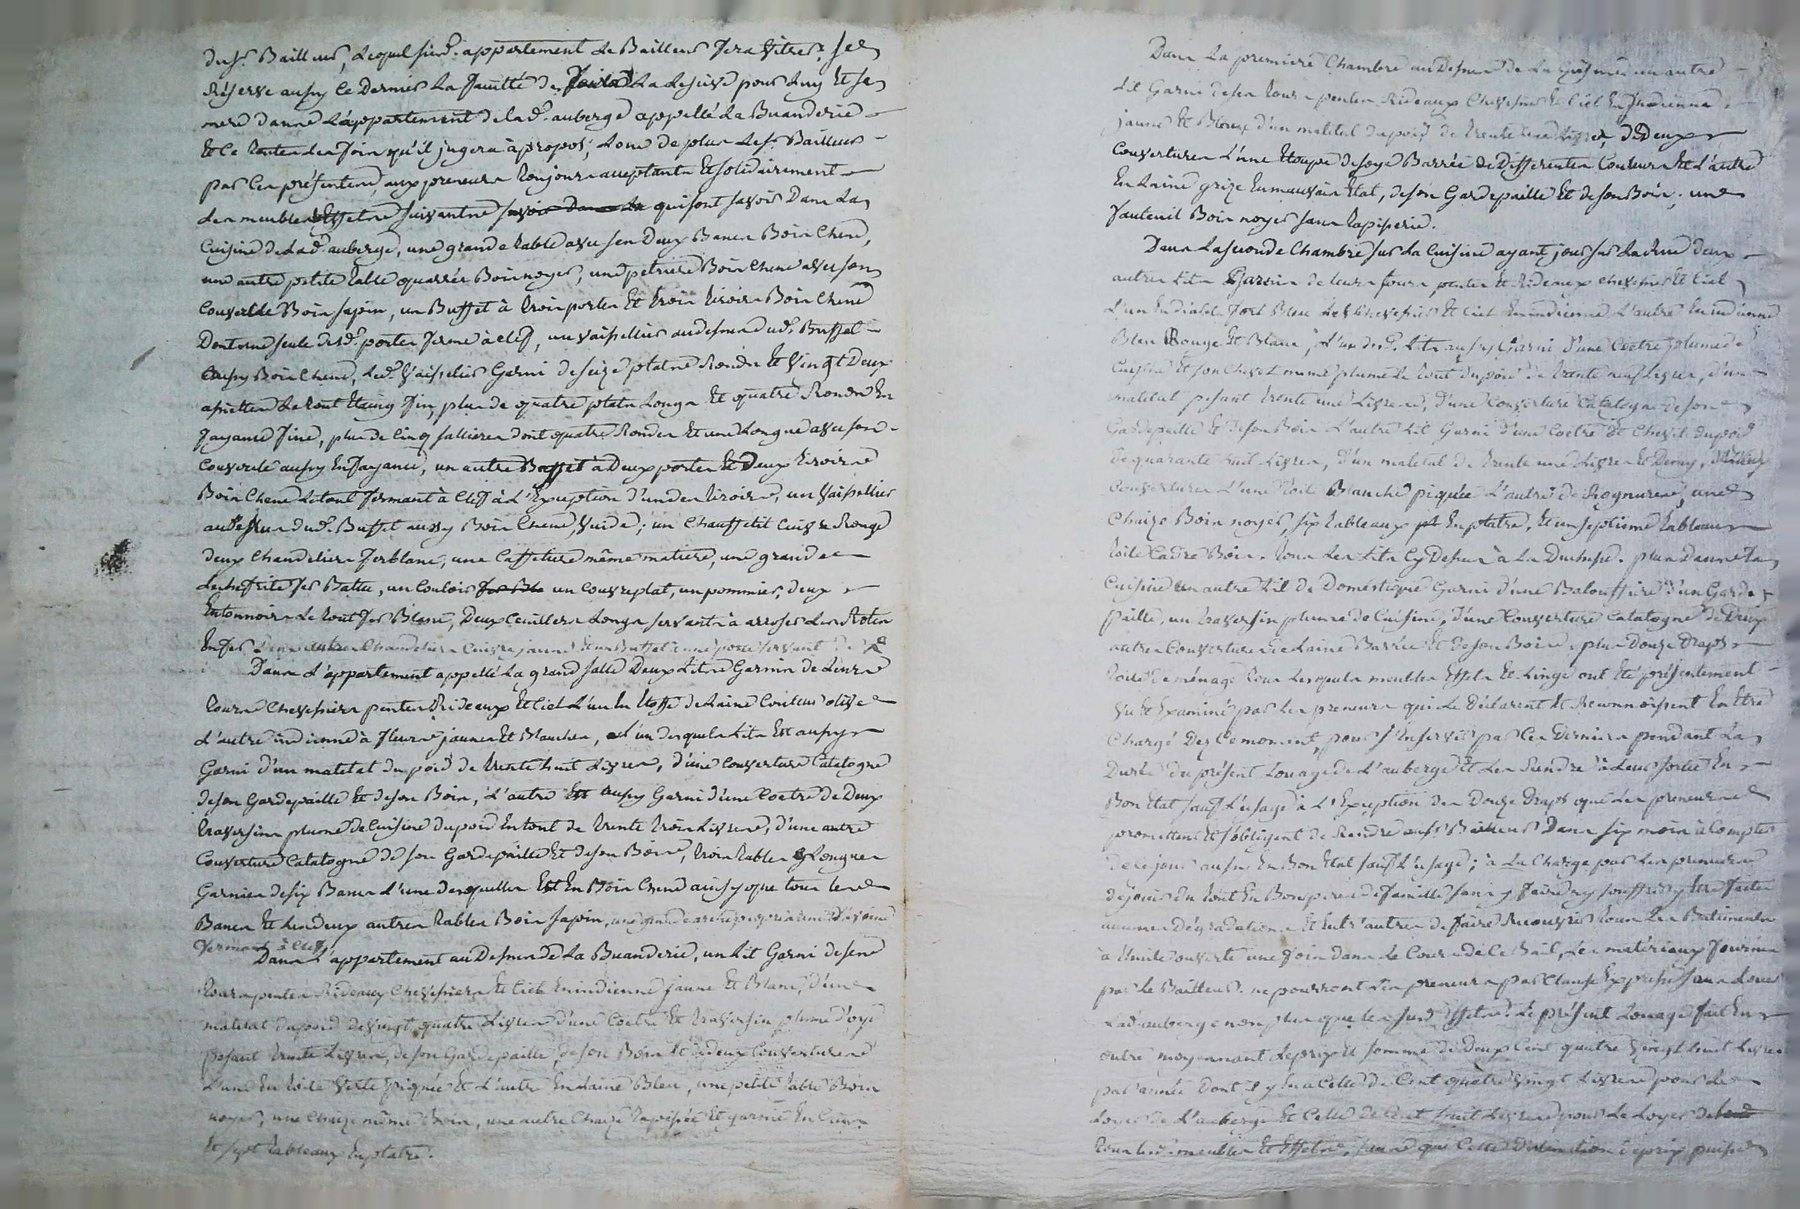 dud. Bailleur, lequel susd. appartement le Bailleur fera vitrer, se
Réserve aussy ce Dernier la faculté de faire la lessive pour luy Et sa
mere danne l'appartement de lad. auberge appellé La Buanderie
Et ce toutes les fois qu'il jugera à propos; Loue de plus led. Bailleur
par ces présentes, aux preneurs toujours acceptants Et solidairement
Les meubles Effetne suivantne qui sont savoir Dans La
Cuisine de Lad. auberge, une grande table avec ses Deux Bancs Bois Chene,
une autre petite table quarrée Bois noyer, une petriere Bois Chene avec son
Couvercle Bois sapin, un Buffet à trois portes Et trois tiroirs Bois Chene
Dont une seule desd. portes ferme à clef, un vaissellier au dessus dud. Buffet
aussy Bois Chene, led. Vaisselier Garni de seize platne Ronds Et Vingt Deux
assiettes Le tout Etaing fin, plus de quatre plats Longs Et quatre Ronds En
fayance fine, plus de Cinq sallieres dont quatre Rondes Et une Longue avec son
Couvercle aussy En fayance, un autre Buffet à Deux portes Et Deux tiroirs
Bois Chene Le tout fermant à Clef à L'Exception d'un des tiroirs, un Vaissellier
au dessus dud. Buffet aussy Bois Chene, Vuide; un Chauffelit Cuivre Rouge
deux Chandeliers ferblanc, une Caffetiere même matiere, une grande
Lechefrite fer Battu, un Coulois un Couvreplat, un pommier, deux
Entonnoirs Le tout fer Blanc, Deux Cuilleres Longs servants à arroser Les Rotis
En fer
Dans L'appartement appellé La grand salle Deux Lits Garnis de Leurs
tours Chevessiers pentes Rideaux Et Ciel L'un En Etoffe de Laine Couleur olive
L'autre indienne à fleurs jaunes Et Blanches, L'un desquels Lits Est aussy
Garni d'un matelat du poid de trente huit Livres, d'une Couverture Catalogne
de son Gardepaille Et de son Bois, L'autre Est aussy Garni d'une Coetre de Deux
traversins plume de Cuisine du poid En tout de trente trois Livres, d'une autre
Couverture Catalogne de son Gardepaille Et de son Bois, trois tables Longues
Garnies de six Bancs L'une desquelles Est En Bois Chene ainsy que tous les
Bancs Et Les deux autres tables Bois sapin,
fermant à clef,
Dans L'appartement au Dessus de La Buanderie, un Lit Garni de ses
tours pentes Rideaux Chevessiers Et Ciel En indienne jaune Et Blanc, d'un
matelat du poid de vingt quatre Livres d'une Coetre Et traversin plume d'oye
pesant trente Livres, de son Gardepaille, de son Bois Et de deux Couvertures
L'une En toile Verte piquée Et L'autre En Laine Bleu, une petite table Bois
noyer, une Chaize même Bois, une autre Chaize tapissée Et garnie En Cuir
Et sept tableaux En platre.
Dans La premiere Chambre au Dessus de La Cuisine un autre
Lit Garni de ses tours pentes Rideaux Chevessier Et Ciel En Indienne
jaune Et Bleux d'un matelat du poid de trente Livres, de Deux
Couvertures L'une Etoupe de soye Barrée de Differentes Couleurs Et L'autre
En Laine grize En mauvais Etat, de son Gardepaille Et de son Bois, un
fauteuil Bois noyer sans tapisserie.
Dans La seconde Chambre sur La Cuisine ayant jour sur La Rue deux
autres Lits Garnis de Leurs tours, pentes Et Rideaux Chevessier Et Ciel
L'un fort Bleu Les Chevessier Et Ciel En indienne L'autre En indienne
Bleu Rouge Et Blanc, L'un desd. Lits aussy Garni d'une Coetre plume de
Cuisine Et son Chevet même plume Le tout du poid de trente neuf Livres, d'un
matelat pesant trente une Livres, d'une Couverture Catalogne de son
Gardepaille Et de son Bois L'autre Lit Garni d'une Coetre Et Chevet du poid
de quarante huit Livres, d'un matelat de trente une Livres Et Demy, de deux
Couvertures L'une toile Blanche piquée L'autre de Rognures, une
Chaize Bois noyer, six tableaux En platre, Et un septieme tableau
toile Cadre Bois. tous Les Lits Cy Dessus à La Duchesse. plus Dans la
Cuisine un autre Lit de Domestique Garni d'une Balouffiere d'un Garde
paille, un traversin plume de Cuisine, d'une Couverture Catalogne de Deux
autres Couvertures de Laine Barrée Et de son Bois. plus Douze Draps
toile de ménage tous Lesquels meubles Effets Et Linge ont Eté présentement
Vu Et Examiné par Les preneurs qui Le Déclarent Et Reconnoissent En Etre
Chargé Dez ce moment pour s'En servir par Ces Derniers pendant La
Durée du présent Louage de L'auberge Et Les Rendre à Leur sortie En
Bon Etat sauf L'usage à L'Exception des Douze Draps que Les preneurs
promettent Et s'obligent de Rendre aud. Bailleur Dans six mois à Compter
de ce jour aussy En Bon Etat sauf L'usage; à La Charge par Les preneurs
de jouir du tout En Bon pere de famille sans y faire ny souffrir Etre faite
aucune Dégradation Et Entr'autres de faire Recouvrir tous Les Batiments
à tuile ouverte une fois Dans Le Cours de Ce Bail, Les matériaux fournis
par Le Bailleur. ne pourront Les preneurs par Clause Expresse sous Louer
Lad. auberge non plus que les susd. Effets. Le présent Louage fait En
outre moyennant Le prix Et somme de Deux Cent quatre vingt huit Livres
par année dont il y En a Celle de Cent quatre vingt Livres pour Le
Loyer de L'auberge Et Celle de Cent huit Livres pour Le Loyer de
tous lesd. meubles Et Effets, sans que Cette Distinction de prix puisse